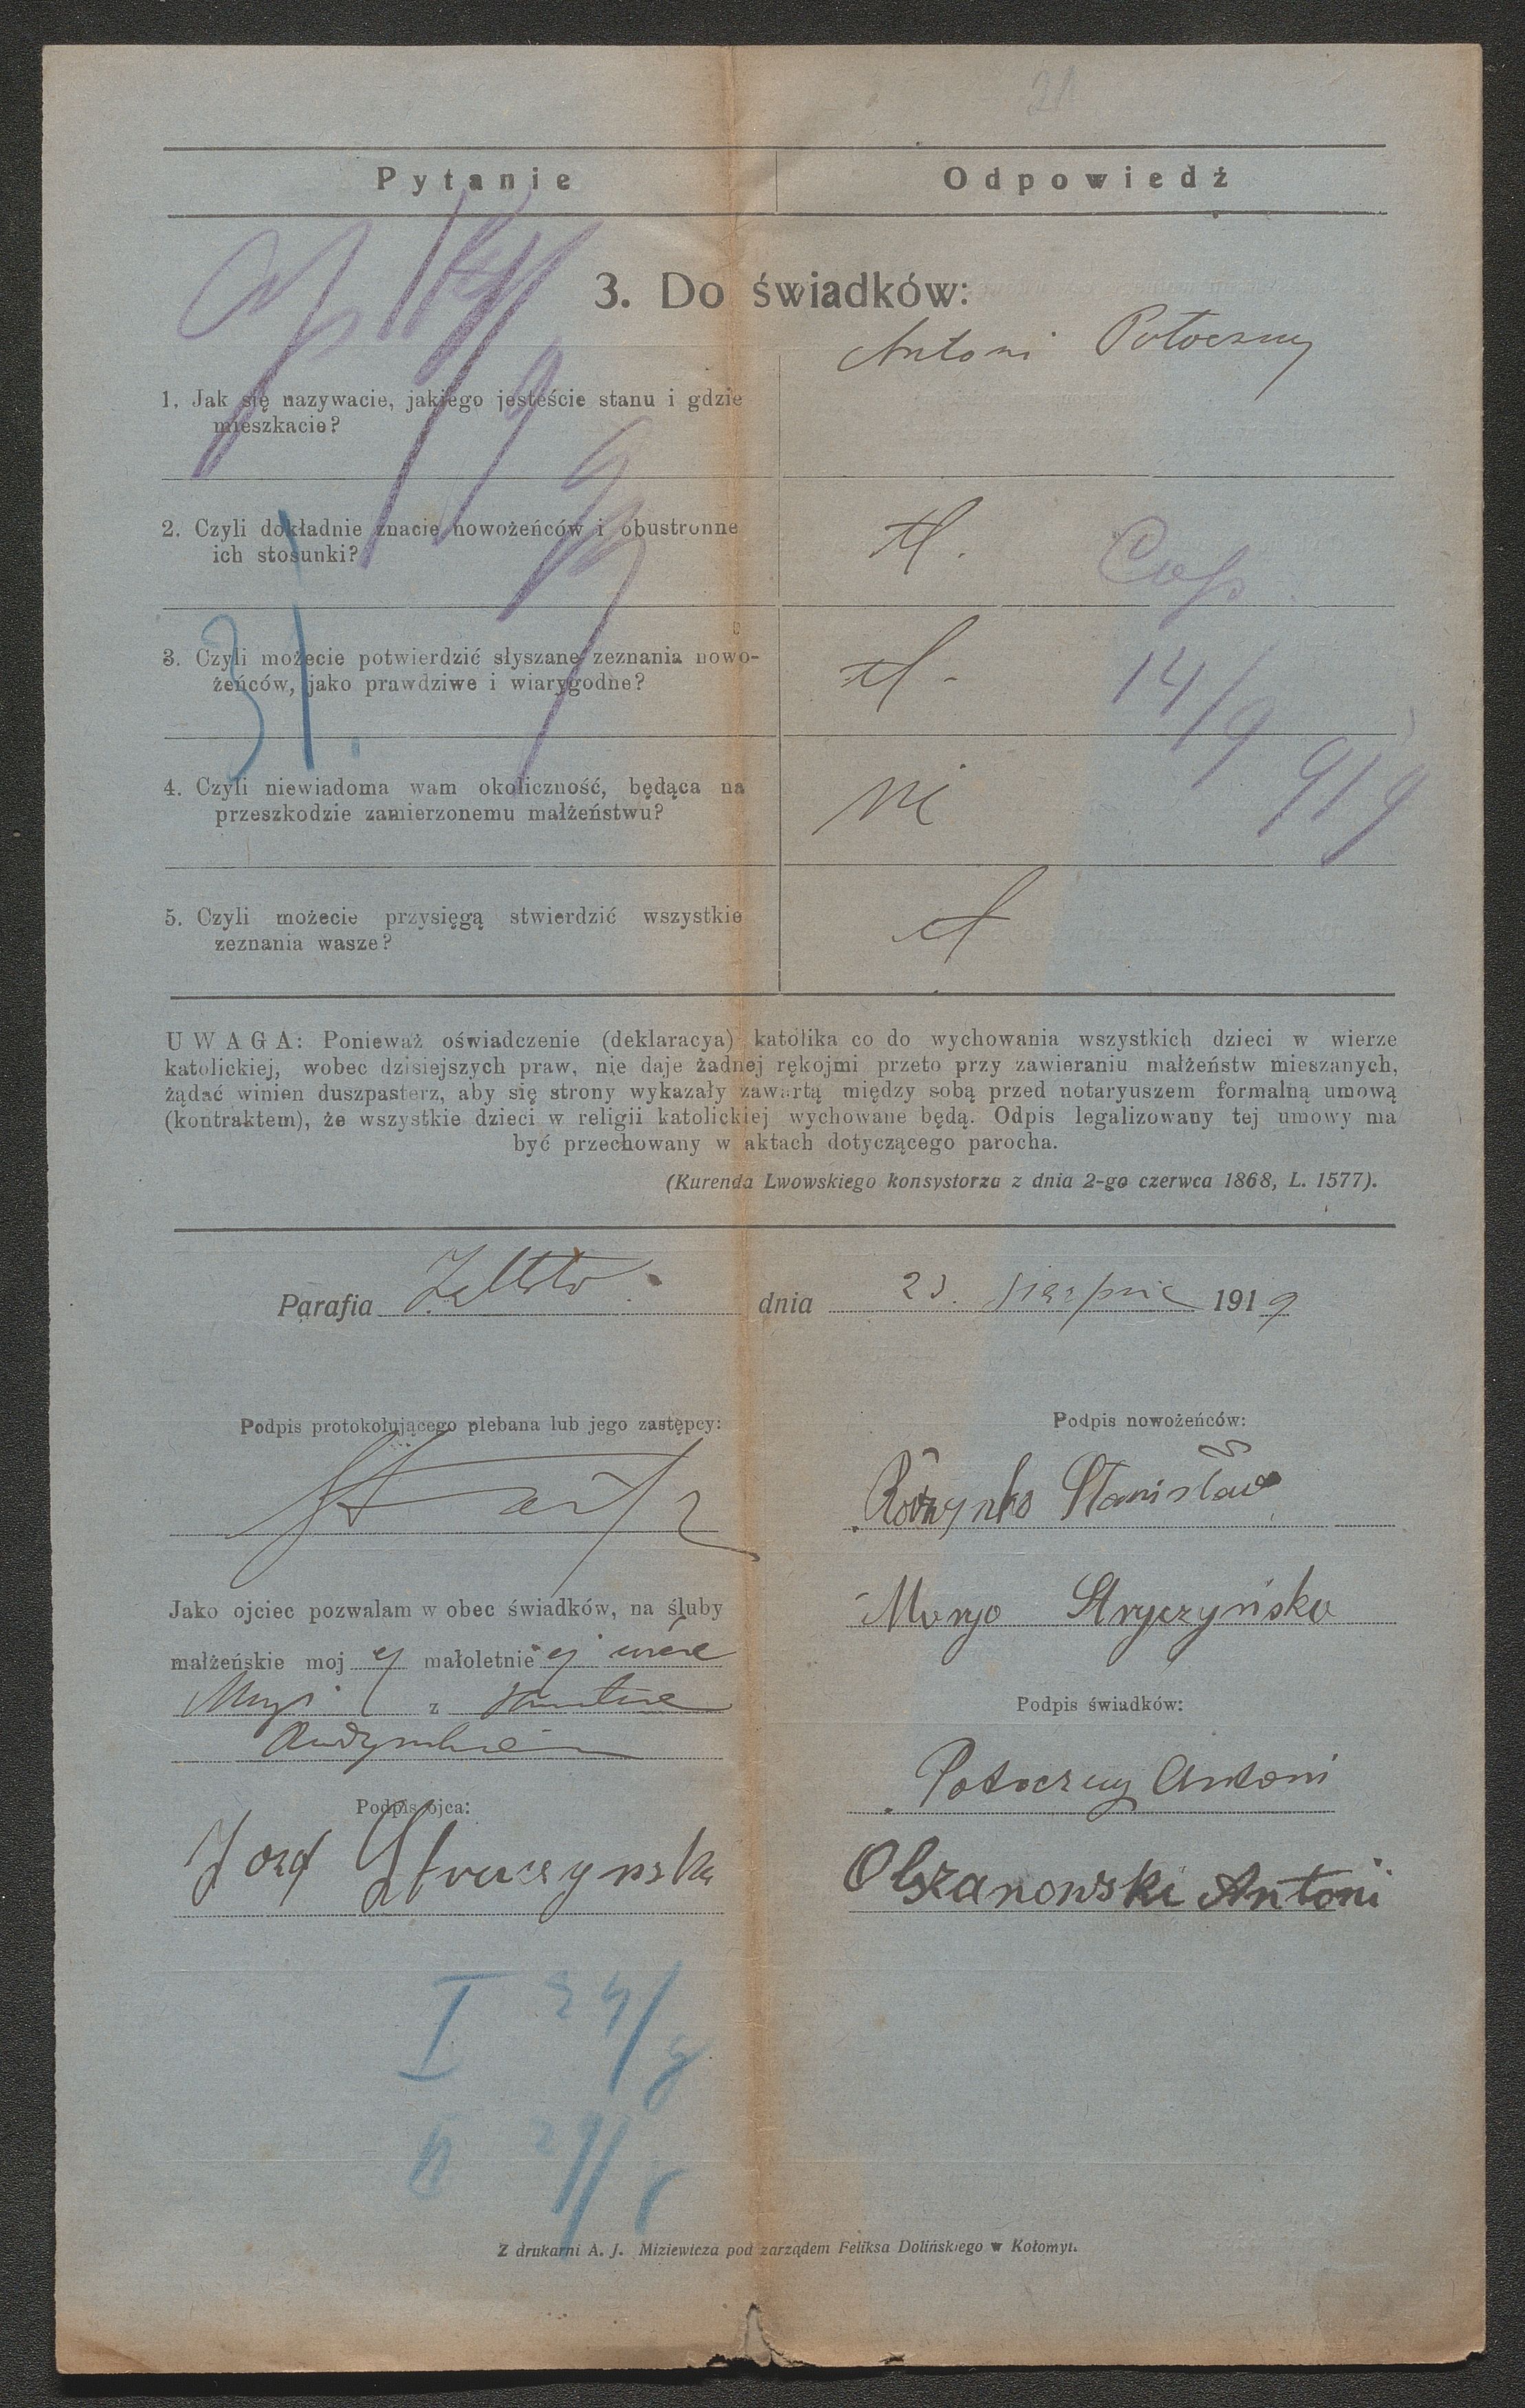 21
Pytanie Odpowiedź
3. Do świadków:
Antoni Potoczny
1. Jak się nazywacie, jakiego jesteście stanu i gdzie
mieszkacie?
2. Czyli dokładnie znacie nowożeńców i obustronne
ich stosunki?
3. Czyli możecie potwierdzić słyszane zeznania nowo-
żeńców, jako prawdziwe i wiarygodne?
14/9 919
31.
4. Czyli niewiadoma wam okoliczność, będąca na
przeszkodzie zamierzonemu małżeństwu?
5. Czyli możecie przysięgą stwierdzić wszystkie
zeznania wasze?
UWAGA: Ponieważ oświadczenie (deklaracya) katolika co do wychowania wszystkich dzieci w wierze
katolickiej, wobec dzisiejszych praw, nie daje żadnej rękojmi przeto przy zawieraniu małżeństw mieszanych,
żądać winien duszpasterz, aby się strony wykazały zawartą między sobą przed notaryuszem formalną umową
(kontraktem), że wszystkie dzieci w religii katolickiej wychowane będą. Odpis legalizowany tej umowy ma
być przechowany w aktach dotyczącego parocha.
(Kurenda Lwowskiego konsystorza z dnia 2-go czerwca 1868, L. 1577).
Parafia dnia 23. sierpnia 1919
Podpis protokołującego plebana lub jego zastępcy:
Podpis nowożeńców:
Stanisław
Jako ojciec pozwalam w obec świadków, na śluby
Maryo Stryczyńska
małżeńskie mojej małoletniej
z
Podpis świadków:
Potoczny Antoni
Podpis ojca:
Józef
Olszanowski Antoni
I 24/8
II
Z drukarni A. J. Miziewicza pod zarządem Feliksa Dolińskiego w Kołomyi.